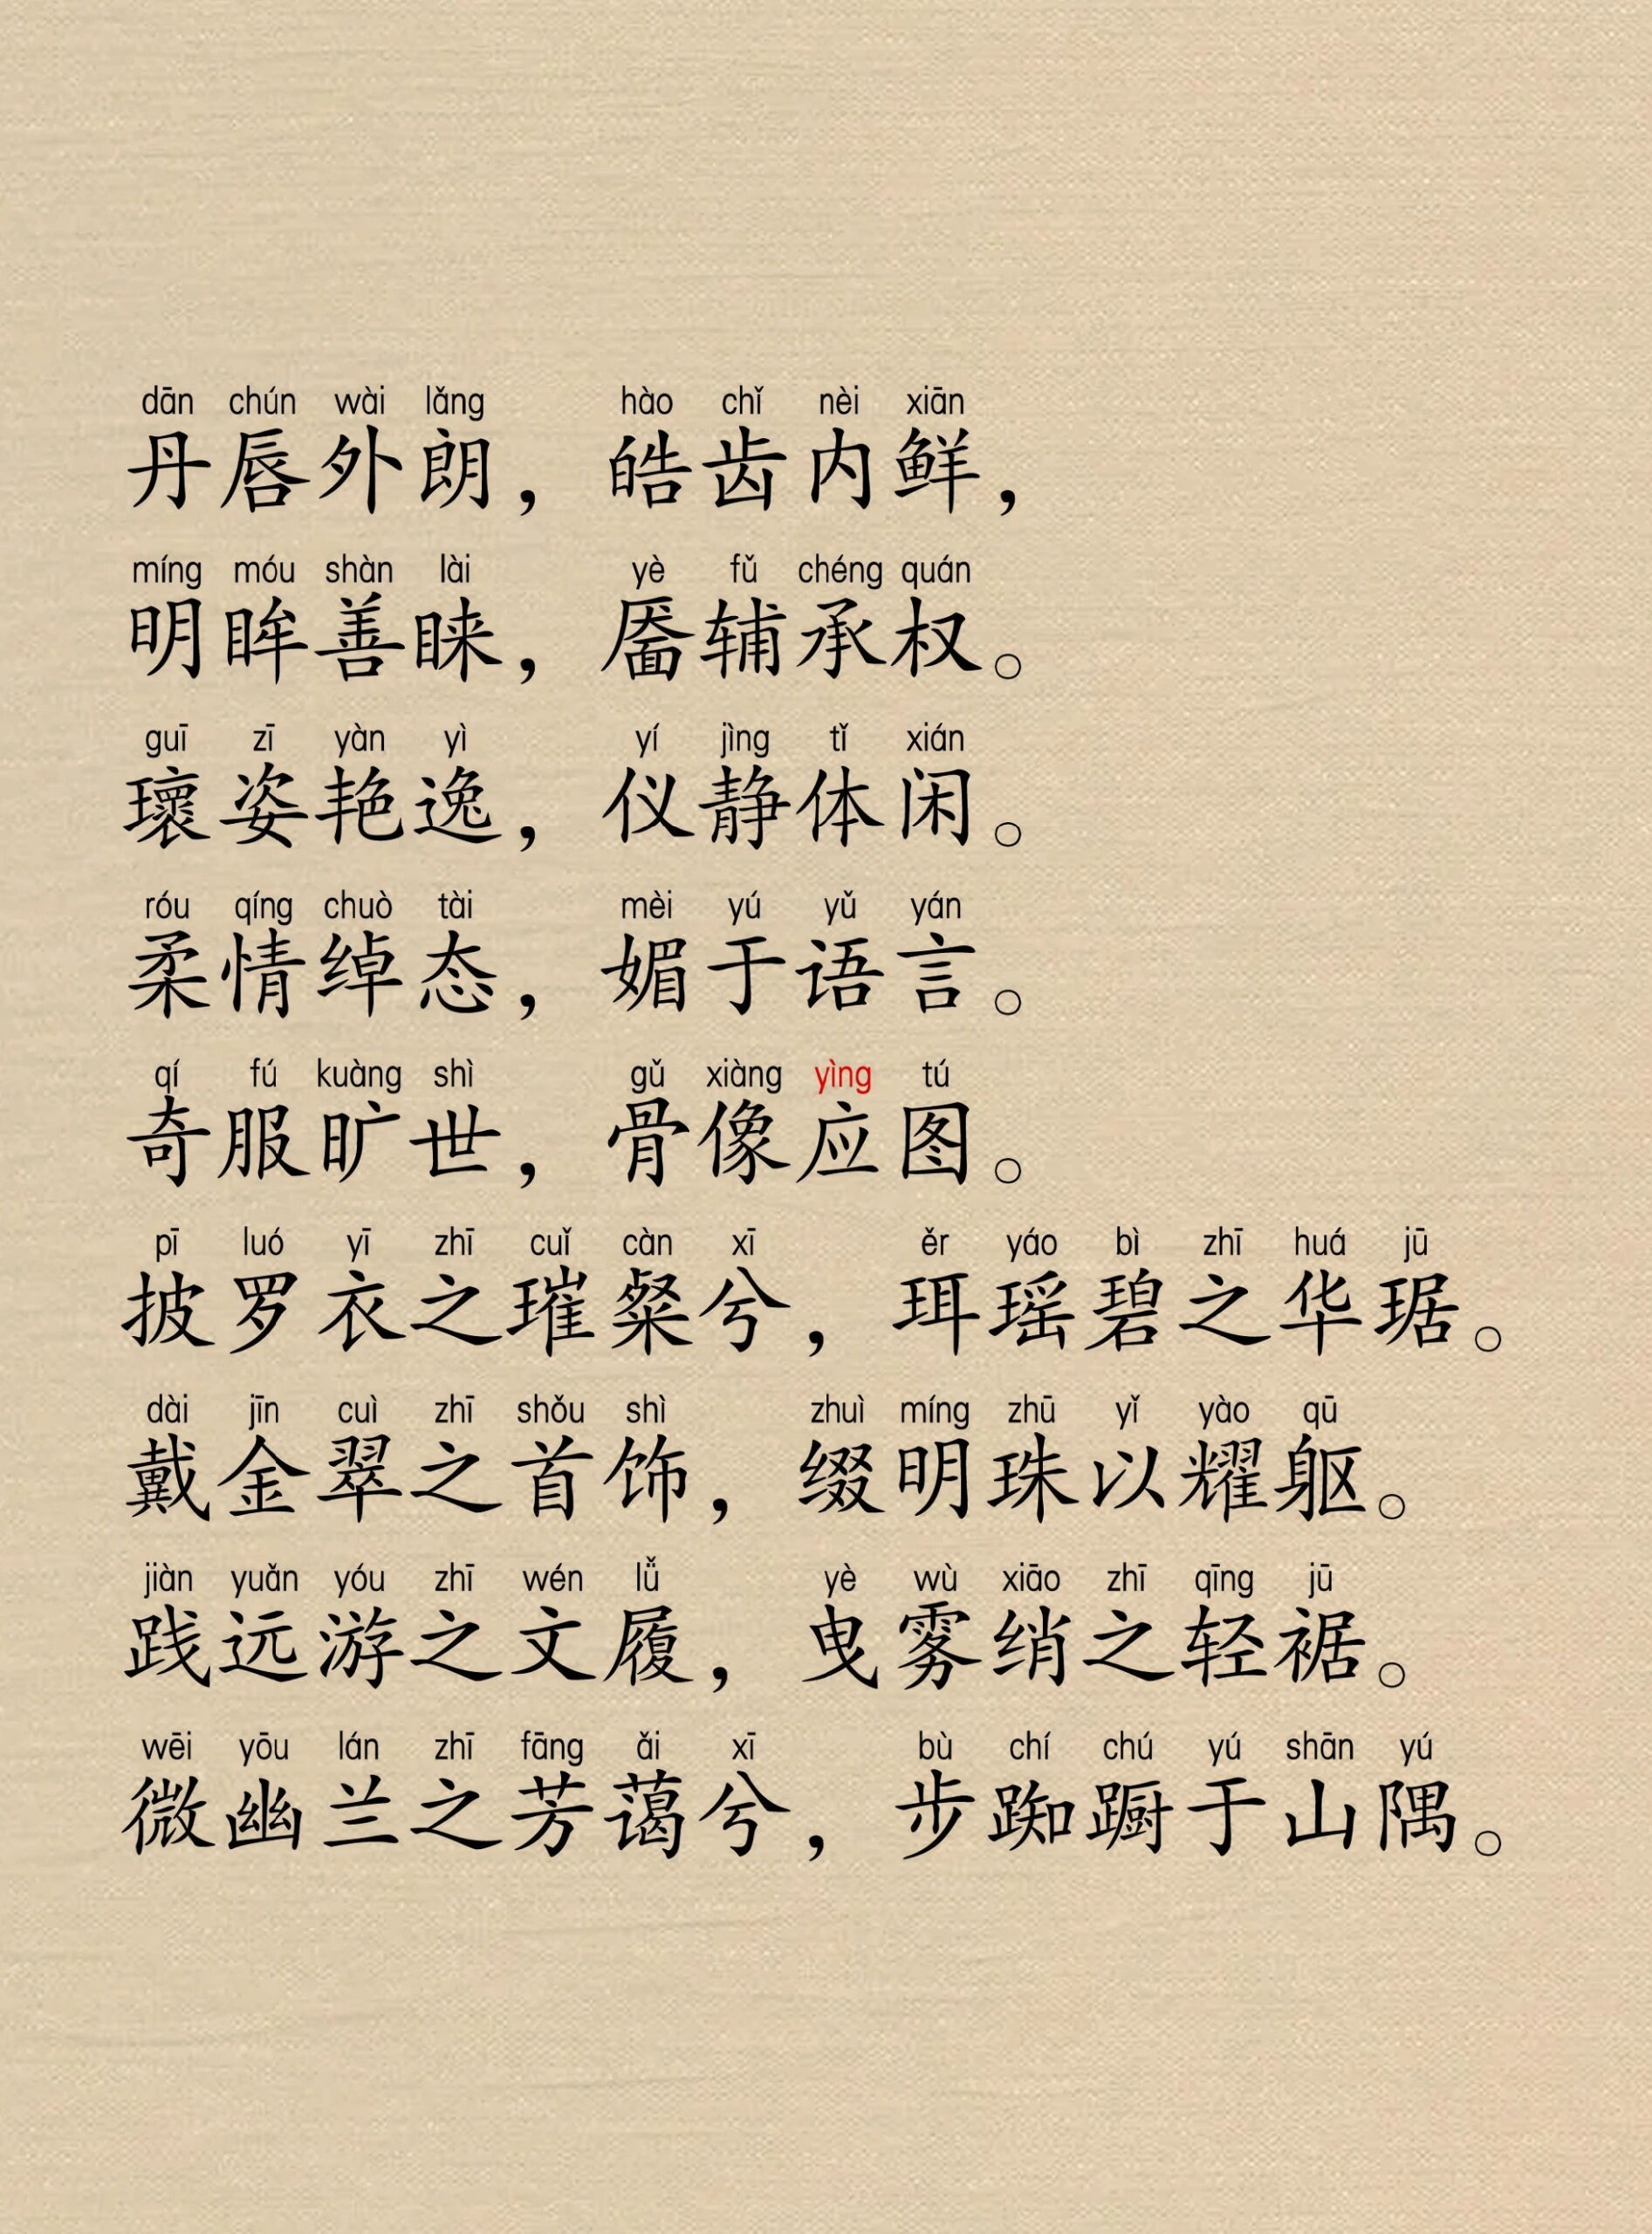 dān chún wài lǎng hào chǐ nèi xiān
丹唇外朗，皓齿内鲜，
míng móu shàn lài yè fǔ chéng quán
明眸善睐，靥辅承权。
guī zī yàn yì yí jìng tǐ xián
瓌姿艳逸，仪静体闲。
róu qíng chuò tài mèi yú yǔ yán
柔情绰态，媚于语言。
qí fú kuàng shì gǔ xiàng yìng tú
奇服旷世，骨像应图。
pī luó yī zhī cuǐ càn xī ěr yáo bì zhī huá jū
披罗衣之璀粲兮，珥瑶碧之华琚。
dài jīn cuì zhī shǒu shì zhuì míng zhū yǐ yào qū
戴金翠之首饰，缀明珠以耀躯。
jiàn yuǎn yóu zhī wén lǚ yè wù xiāo zhī qīng jū
践远游之文履，曳雾绡之轻裾。
wēi yōu lán zhī fāng ǎi xī bù chí chú yú shān yú
微幽兰之芳蔼兮，步踟蹰于山隅。